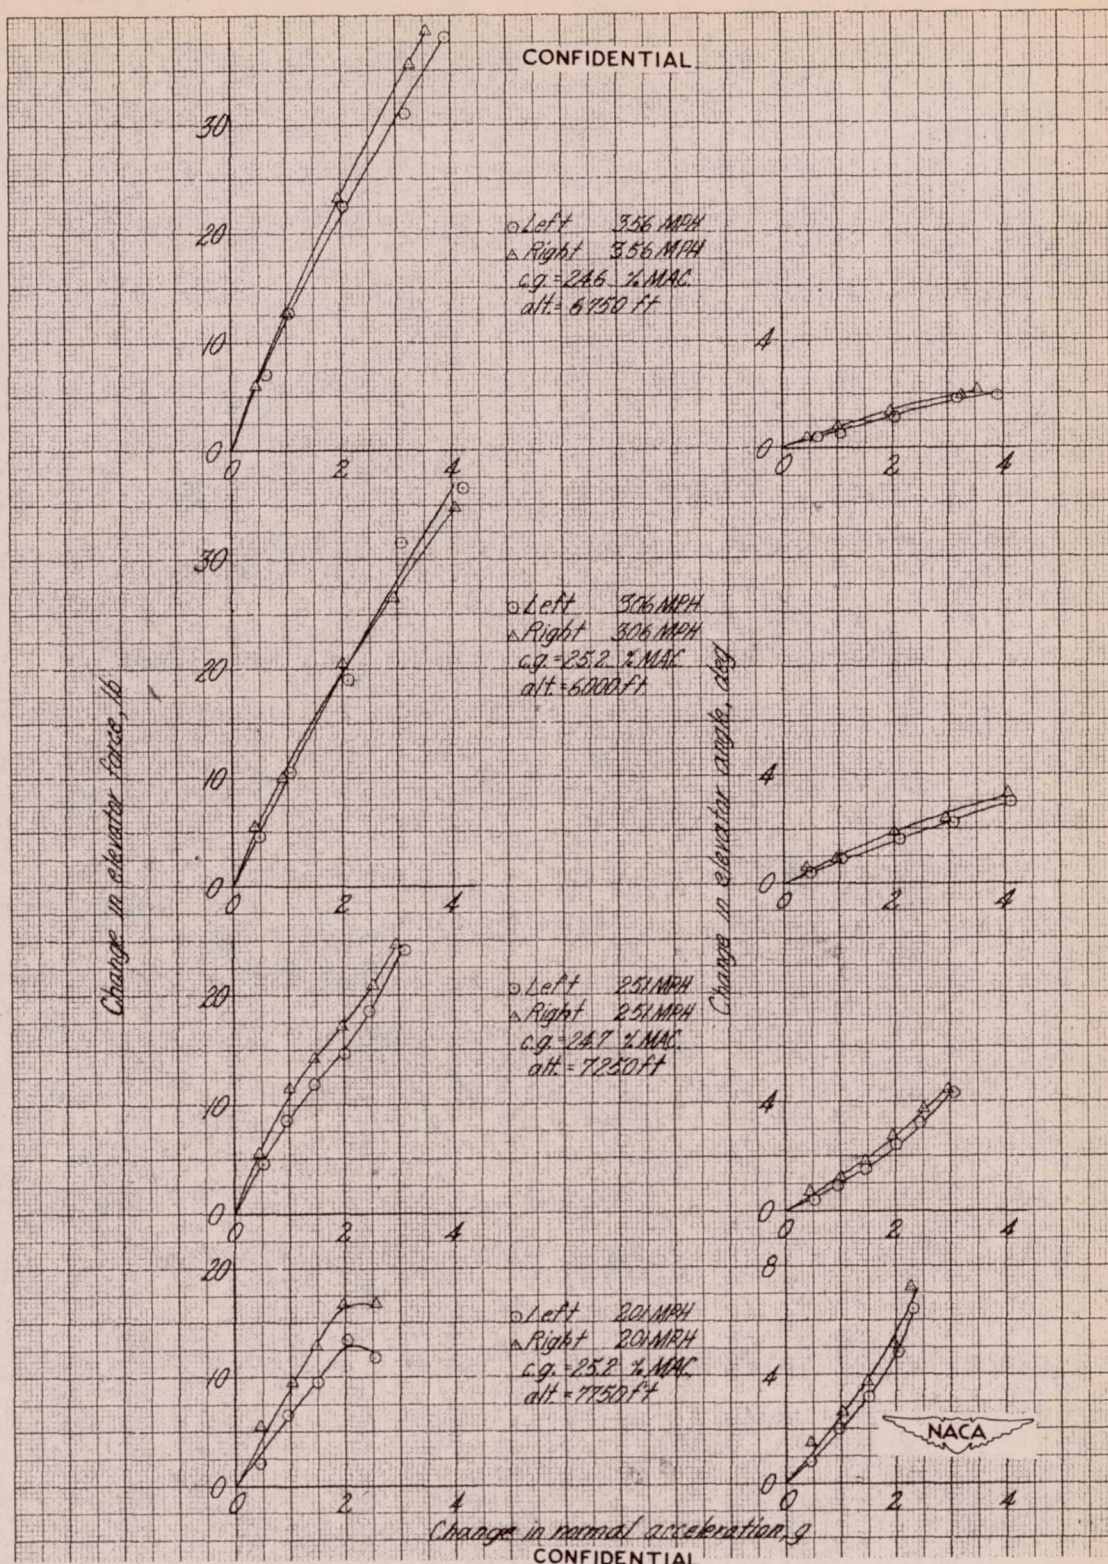 CONFIDENTIAL
30
20
10
0
0 2 4
o Left 356 MPH
△ Right 356 MPH
c.g. = 24.6 % MAC
alt. = 6750 ft
4
0
0 2 4
30
20
10
0
0 2 4
o Left 306 MPH
△ Right 306 MPH
c.g. = 25.2 % MAC
alt. = 6000 ft
4
0
0 2 4
Change in elevator force, lb
Change in elevator angle, deg
20
10
0
0 2 4
o Left 251 MPH
△ Right 251 MPH
c.g. = 24.7 % MAC
alt. = 7250 ft
4
0
0 2 4
20
10
0
0 2 4
o Left 201 MPH
△ Right 201 MPH
c.g. = 25.2 % MAC
alt. = 7750 ft
8
4
0
0 2 4
NACA
Change in normal acceleration, g
CONFIDENTIAL